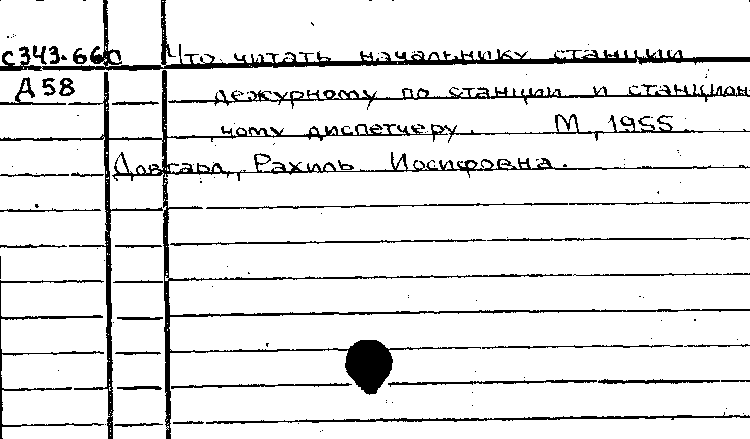 С343.660 Что читать начальнику станции
Д58 дежурному по станции и станцион
ному диспетчеру. М, 1955.
Довгард, Рахиль Иосифовна.